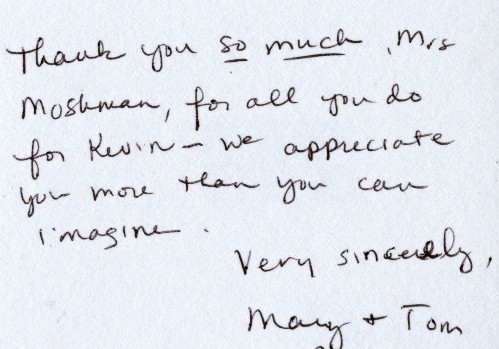 Thank you so much, Mrs
Moshman, for all you do
for Kevin - we appreciate
you more than you can
imagine.
Very sincerely,
Mary + Tom